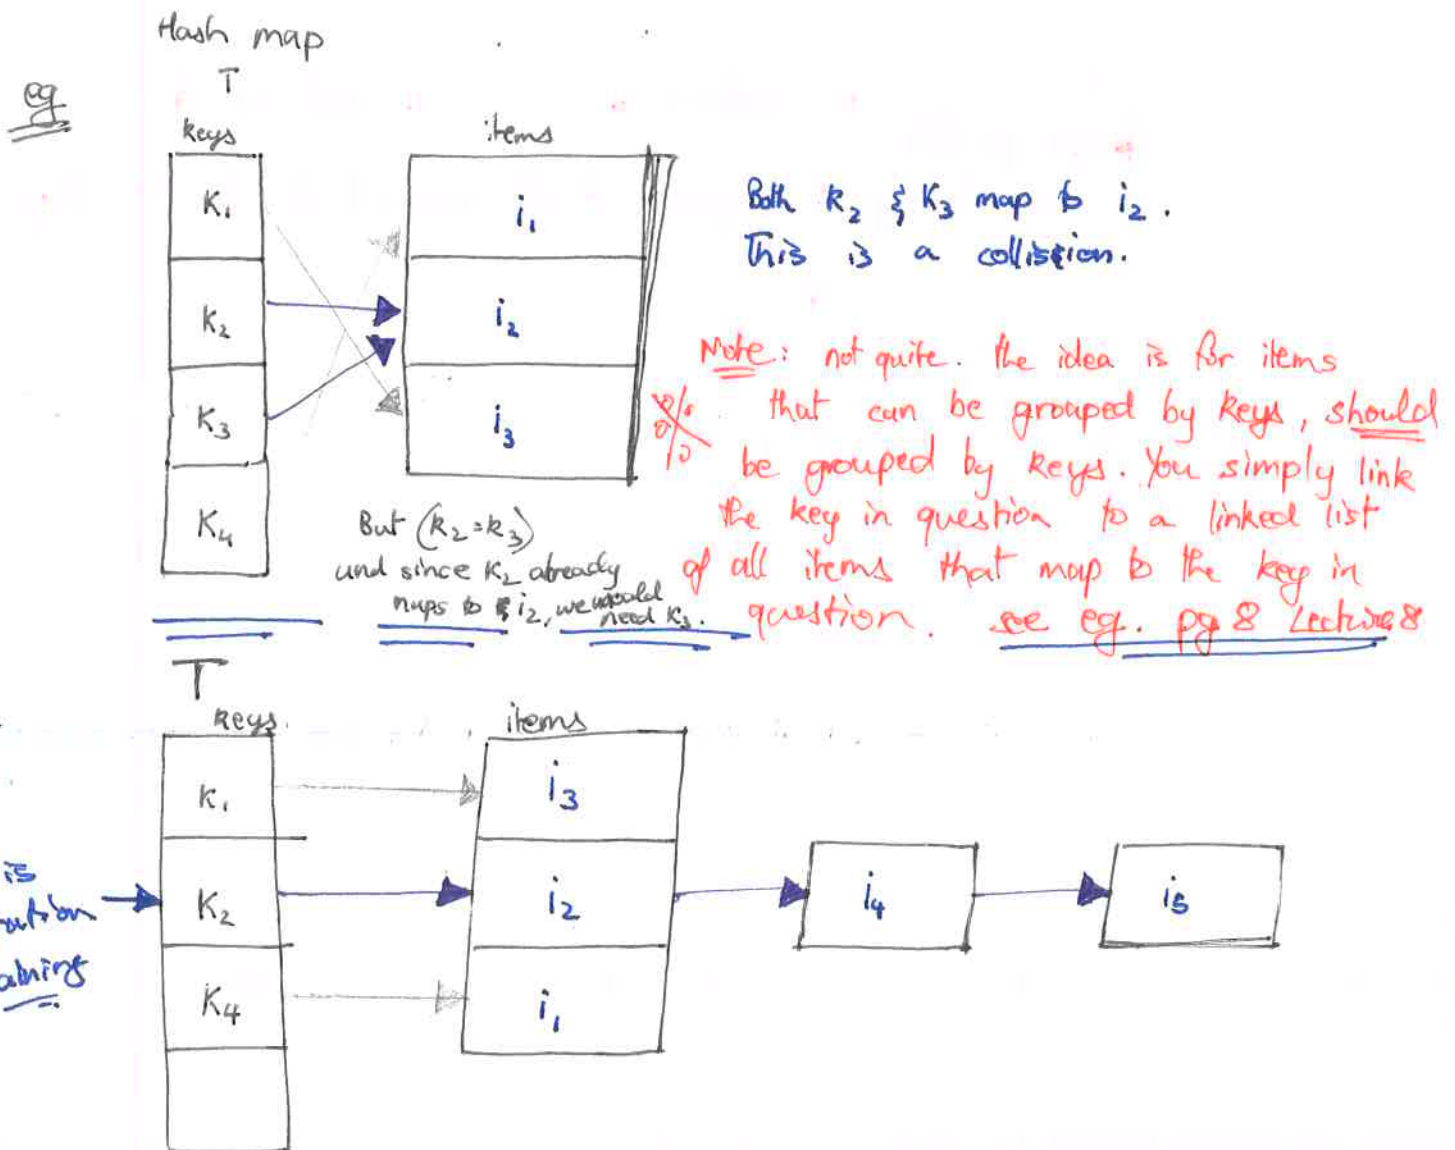 Hash map
eg
T
keys
items
K₁
K₂
K₃
K₄
i₁
i₂
i₃
Both K₂ & K₃ map to i₂.
This is a collission.
Note: not quite. the idea is for items
that can be grouped by keys, should
be grouped by keys. You simply link
the key in question to a linked list
of all items that map to the key in
question. see eg. pg 8 Lecture 8
But (k₂=k₃)
und since K₂ already
maps to i₂, we would
need K₃.
T
keys.
items
K₁
K₂
K₄
i₃
i₂
i₁
i₄
i₅
is